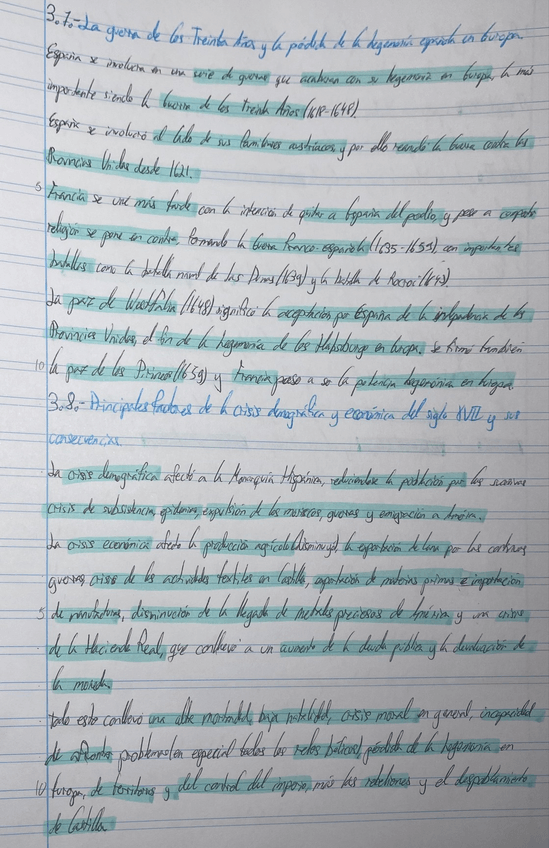 3.7.- La guerra de los Treinta Años y la pérdida de la hegemonía española en Europa.
España se involucra en una serie de guerras que acabaron con su hegemonía en Europa, la más
importante siendo la Guerra de los Treinta Años (1618-1648).
España se involucró al lado de sus familiares austriacos, y por ello reanudó la Guerra contra las
Provincias Unidas desde 1621.
5 Francia se une más tarde con la intención de quitar a España del podio, y pese a compartir
religión se pone en contra, formando la Guerra Franco-española (1635-1659) con importantes
batallas como la batalla naval de las Dunas (1639) y la batalla de Rocroi (1643).
La paz de Westfalia (1648) significó la aceptación por España de la independencia de las
Provincias Unidas, el fin de la hegemonía de los Habsburgo en Europa. Se firmó también
10 la paz de los Pirineos (1659) y Francia pasó a ser la potencia hegemónica en Europa.
3.8.- Principales factores de la crisis demográfica y económica del siglo XVII y sus
consecuencias.
La crisis demográfica afectó a la Monarquía Hispánica, reduciéndose la población por las sucesivas
crisis de subsistencia, epidemias, expulsión de los moriscos, guerras y emigración a América.
La crisis económica afectó la producción agrícola (disminuyó), la exportación de lana por las continuas
guerras, crisis de las actividades textiles en Castilla, exportación de materias primas e importación
5 de manufacturas, disminución de la llegada de metales preciosos de América y una crisis
de la Hacienda Real, que conllevó a un aumento de la deuda pública y la devaluación de
la moneda.
Todo esto conllevó una alta mortandad, baja natalidad, crisis moral en general, incapacidad
de afrontar problemas (en especial todos los retos bélicos), pérdida de la hegemonía en
10 Europa, de territorios y del control del imperio, más las rebeliones y el despoblamiento
de Castilla.